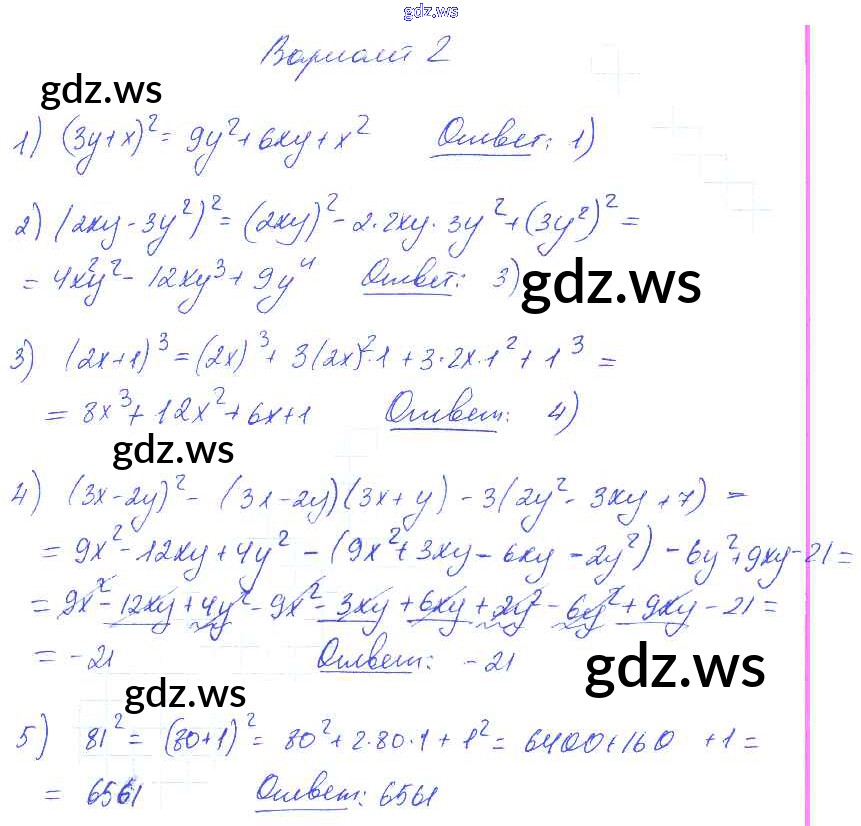 gdz.ws
Вариант 2
gdz.ws
1) (3y+x)² = 9y²+6xy+x² Ответ: 1)
2) (2xy-3y²)² = (2xy)² - 2·2xy·3y² + (3y²)² =
= 4x²y² - 12xy³ + 9y⁴ Ответ: 3)
gdz.ws
3) (2x+1)³ = (2x)³ + 3(2x)²·1 + 3·2x·1² + 1³ =
= 8x³ + 12x² + 6x+1 Ответ: 4)
gdz.ws
4) (3x-2y)² - (3x-2y)(3x+y) - 3(2y² - 3xy + 7) =
= 9x² - 12xy + 4y² - (9x² + 3xy - 6xy - 2y²) - 6y² + 9xy - 21 =
= 9x² - 12xy + 4y² - 9x² - 3xy + 6xy + 2y² - 6y² + 9xy - 21 =
= -21 Ответ: -21
gdz.ws
gdz.ws
5) 81² = (80+1)² = 80² + 2·80·1 + 1² = 6400+160 +1 =
= 6561 Ответ: 6561